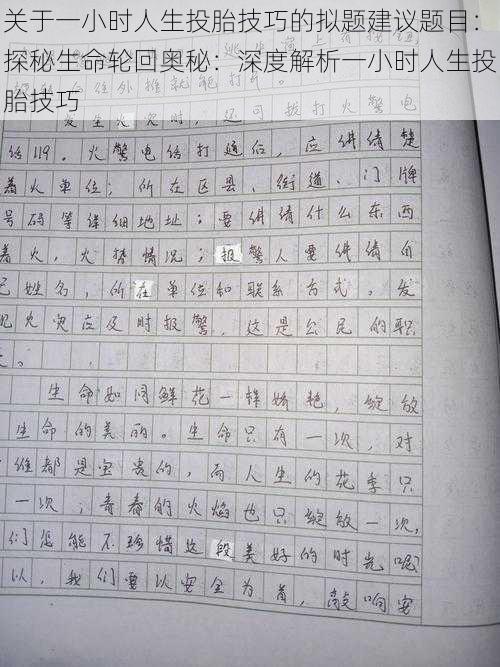 关于一小时人生投胎技巧的拟题建议题目：
探秘生命轮回奥秘：深度解析一小时人生投
胎技巧
发生火灾时，还可拨打火警电
话119。火警电话打通后，应讲清楚
着火单位；所在区县、街道、门牌
号码等详细地址；要讲清什么东西
着火，火势情况；报警人要讲清自
己姓名，所在单位和联系方式。发
现火灾应及时报警，这是公民的职
生命如同鲜花一样娇艳，绽放
生命的美丽。生命只有一次，对
谁都是宝贵的，而人生的花季只
一次，青春的火焰也只绽放一次，
们怎能不珍惜这段美好的时光呢
以，我们要以安全为首，敲响安